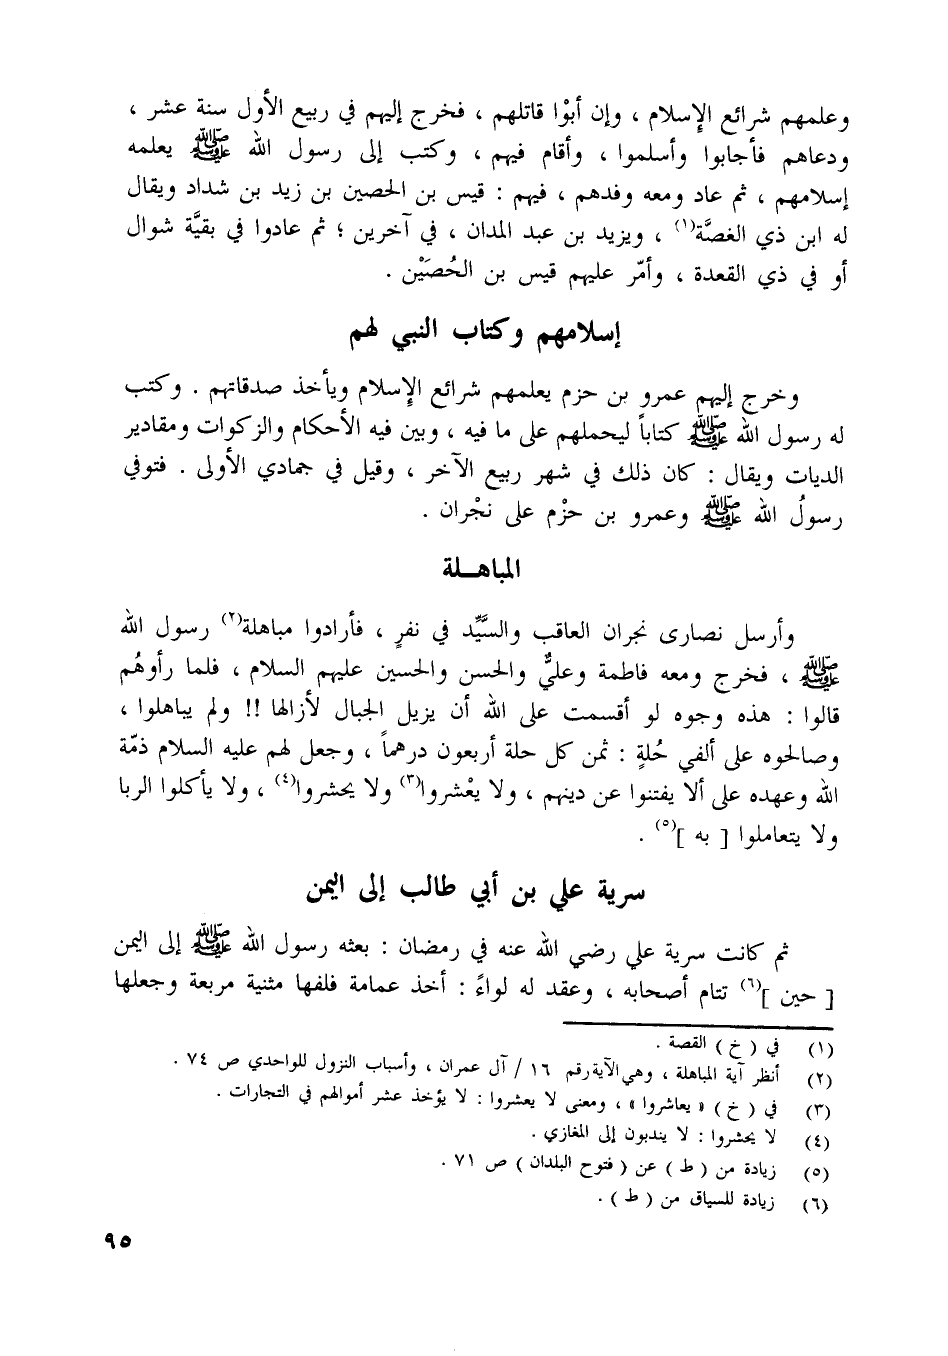 وعلمهم شرائع الإسلام ، وإن أبوْا قاتلهم ، فخرج إليهم في ربيع الأول سنة عشر ،
ودعاهم فأجابوا وأسلموا ، وأقام فيهم ، وكتب إلى رسول الله ﷺ يعلمه
إسلامهم ، ثم عاد ومعه وفدهم ، فيهم : قيس بن الحصين بن زيد بن شداد ويقال
له ابن ذي الغصَّة(١) ، ويزيد بن عبد المدان ، في آخرين ؛ ثم عادوا في بقيَّة شوال
أو في ذي القعدة ، وأمّر عليهم قيس بن الحُصَيْن .
إسلامهم وكتاب النبي لهم
وخرج إليهم عمرو بن حزم يعلمهم شرائع الإسلام ويأخذ صدقاتهم . وكتب
له رسول الله ﷺ كتاباً ليحملهم على ما فيه ، وبين فيه الأحكام والزكوات ومقادير
الديات ويقال : كان ذلك في شهر ربيع الآخر ، وقيل في جمادي الأولى . فتوفي
رسولُ الله ﷺ وعمرو بن حزْم على نجْران .
المباهـلة
وأرسل نصارى نجران العاقب والسَّيِّد في نفرٍ ، فأرادوا مباهلة(٢) رسول الله
ﷺ ، فخرج ومعه فاطمة وعليٌّ والحسن والحسين عليهم السلام ، فلما رأوهُم
قالوا : هذه وجوه لو أقسمت على الله أن يزيل الجبال لأزالها !! ولم يباهلوا ،
وصالحوه على ألفي حُلةٍ : ثمن كل حلة أربعون درهماً ، وجعل لهم عليه السلام ذمّة
الله وعهده على ألا يفتنوا عن دينهم ، ولا يعْشروا(٣) ولا يحشروا(٤) ، ولا يأكلوا الربا
ولا يتعاملوا [ به ](٥) .
سرية علي بن أبي طالب إلى اليمن
ثم كانت سرية علي رضي الله عنه في رمضان : بعثه رسول الله ﷺ إلى اليمن
[ حين ](٦) تتام أصحابه ، وعقد له لواءً : أخذ عمامة فلفها مثنية مربعة وجعلها
(١) في ( خ ) القصة .
(٢) أنظر آية المباهلة ، وهي الآية رقم ١٦ / آل عمران ، وأسباب النزول للواحدي ص ٧٤ .
(٣) في ( خ ) « يعاشروا » ، ومعنى لا يعشروا : لا يؤخذ عشر أموالهم في التجارات .
(٤) لا يحشروا : لا يندبون إلى المغازي .
(٥) زيادة من ( ط ) عن ( فتوح البلدان ) ص ٧١ .
(٦) زيادة للسياق من ( ط ) .
٩٥